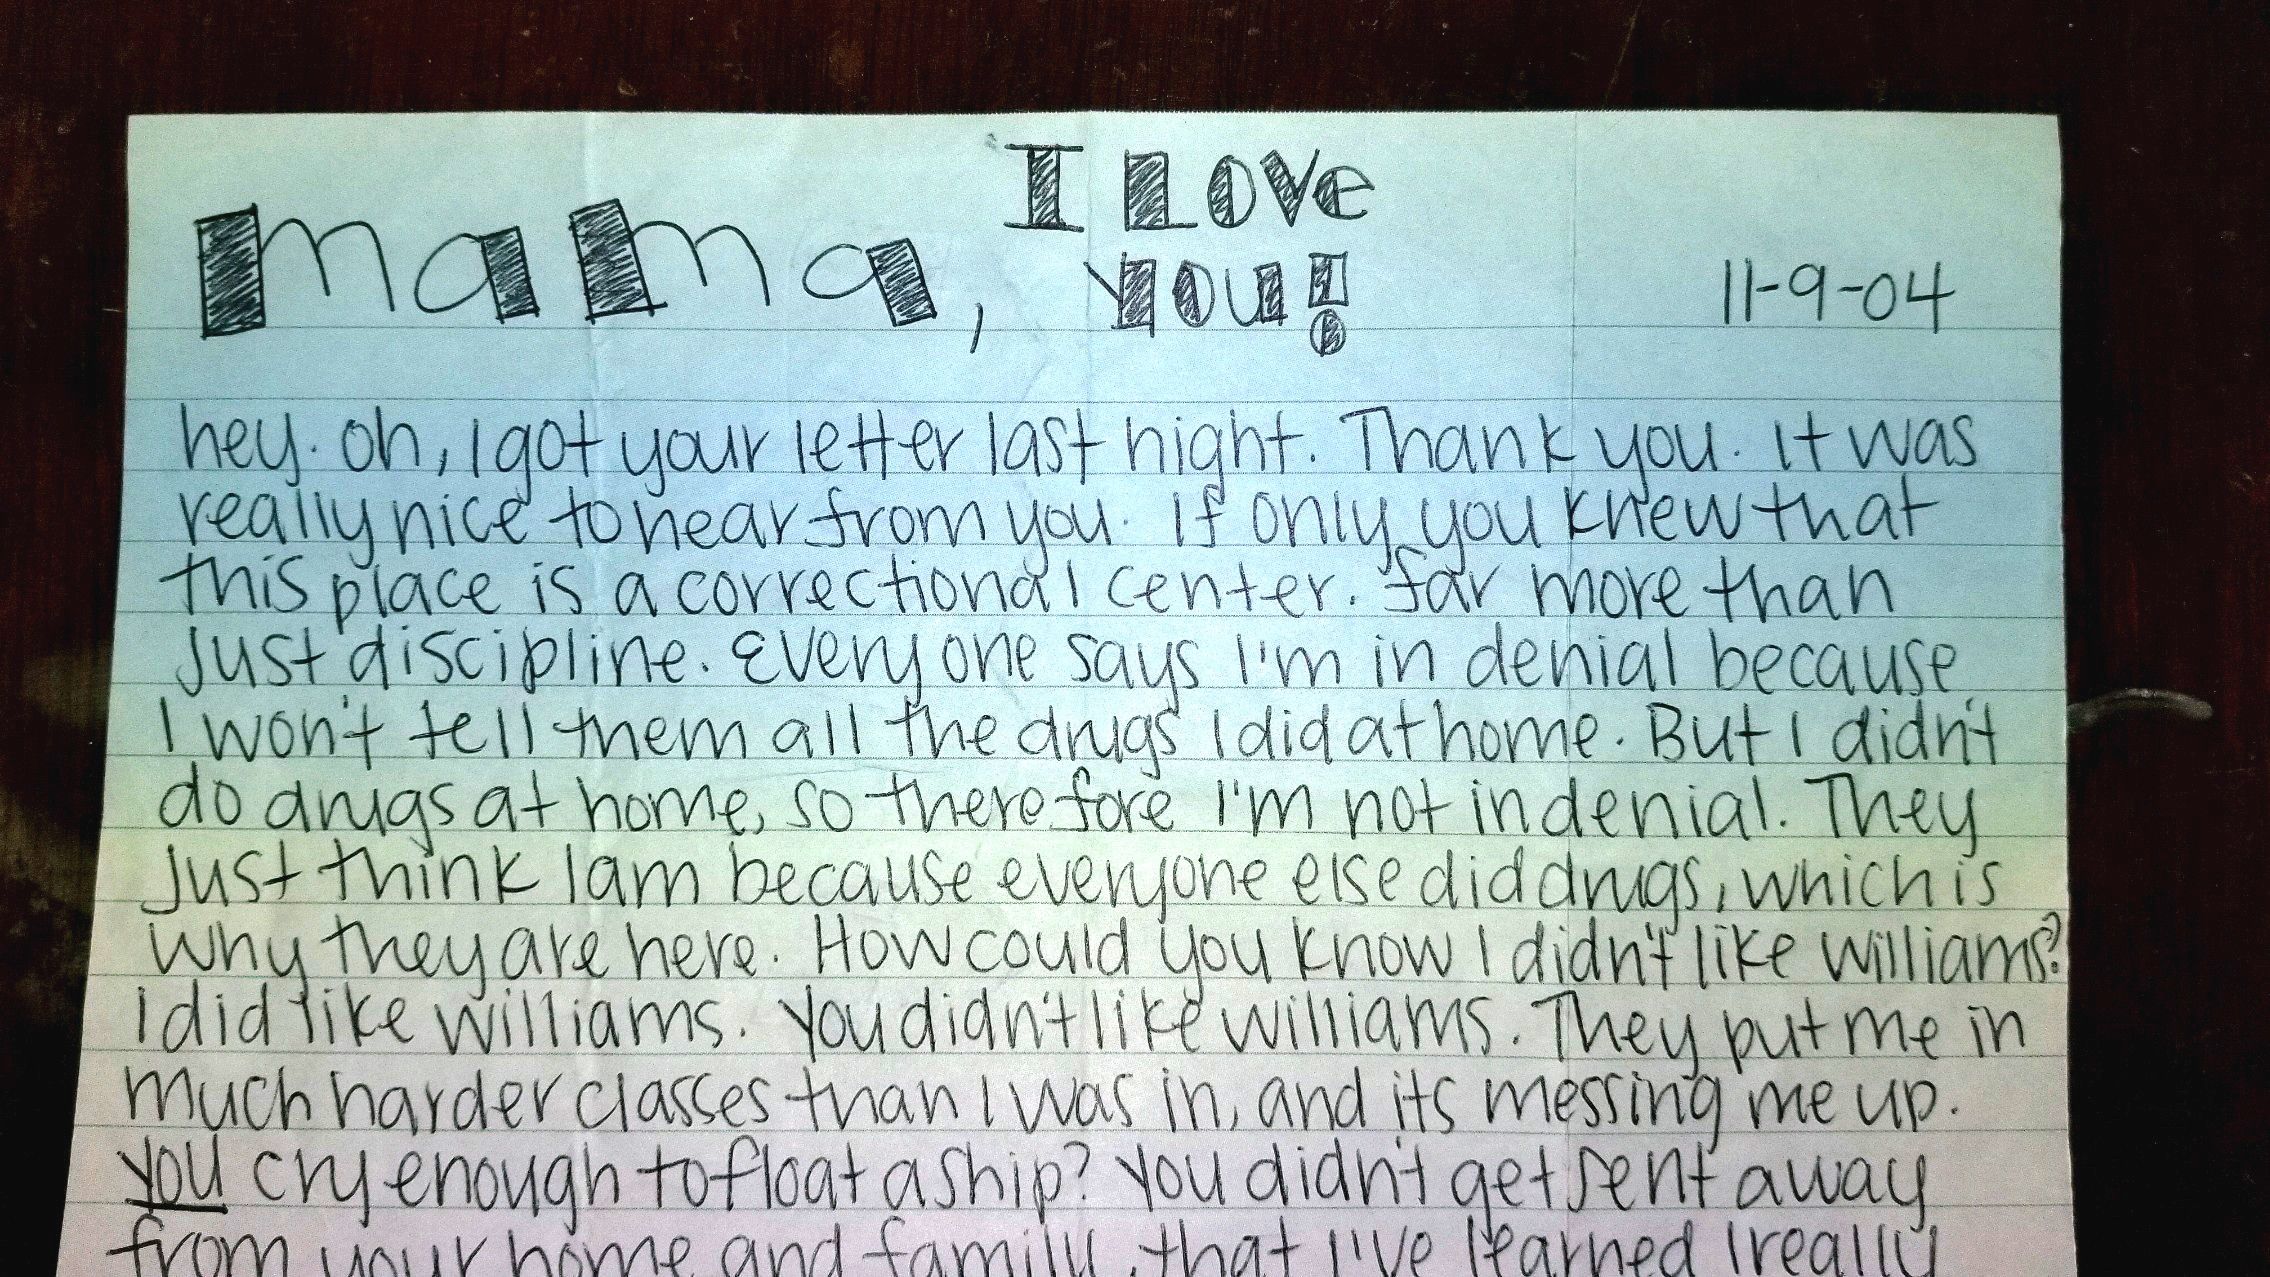 I Love
Mama, you! 11-9-04
hey. oh, I got your letter last night. Thank you. It was
really nice to hear from you. If only you knew that
this place is a correctional center. far more than
just discipline. Everyone says I'm in denial because
I won't tell them all the drugs I did at home. But I didn't
do drugs at home, so therefore I'm not in denial. They
just think I am because everyone else did drugs, which is
why they are here. How could you know I didn't like williams?
I did like williams. You didn't like williams. They put me in
much harder classes than I was in, and its messing me up.
you cry enough to float a ship? You didn't get sent away
from your home and family, that I've learned I really